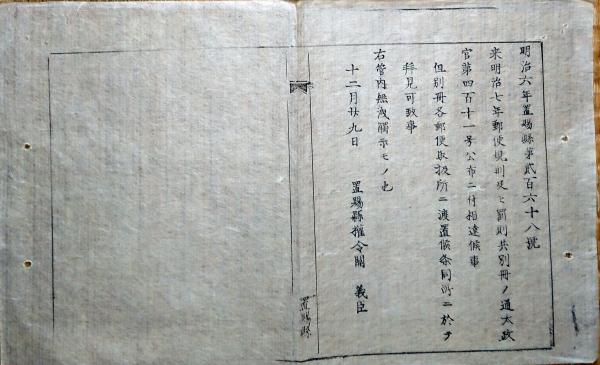 明治六年置賜縣第貳百六十八號
来明治七年郵便規則及ヒ罰則共別冊ノ通太政
官第四百十一号公布ニ付相達候事
但別冊各郵便取扱所ニ渡置候条同所ニ於テ
拝見可致事
右管内無洩觸示モノ也
十二月廿九日
置賜縣権令關 義臣
置賜縣